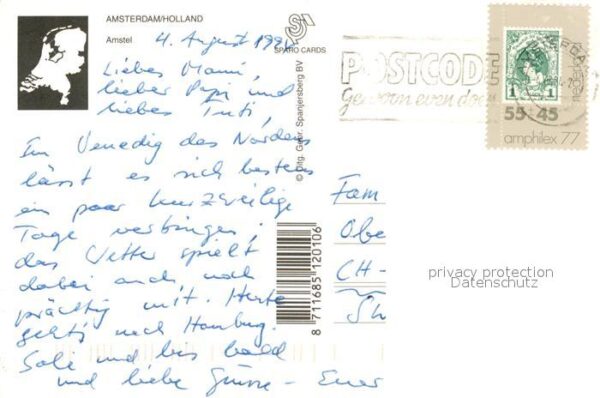 AMSTERDAM/HOLLAND
Amstel
4. August 199
SPARO CARDS
© Dtg. Gebr. Spanjersberg BV
Liebes Mami,
lieber Papi und
liebes Tuti,
Im Venedig des Nordens
lässt es sich bestens
ein paar kurzweilige
Tage verbringen;
das Wetter spielt
dabei auch noch
prächtig mit. Heute
geht's nach Hamburg.
Salü und bis bald
und liebe Grüsse - Euer
8 711685 120106
Fam
Obe
CH-
POSTCODE
Gewoon even doen
1 1
nederland
55+45
amphilex 77
privacy protection
Datenschutz